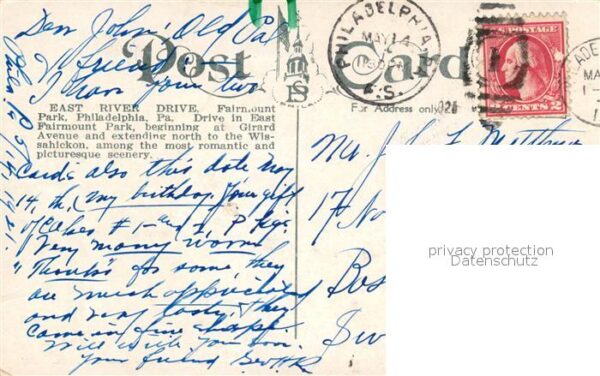 Dear John: Old Pal
& friend:—
I have your two
Post Card
PHILADELPHIA, PA.
MAY 14
P.S.
U.S. POSTAGE
CENTS 2
EAST RIVER DRIVE, Fairmount
Park, Philadelphia, Pa. Drive in East
Fairmount Park, beginning at Girard
Avenue and extending north to the Wis-
sahickon, among the most romantic and
picturesque scenery.
For Address only
Cards also this date May
14, th, (my birthday. Your gift
of Cakes # 1- and 2, P
Very many warm
"Thanks" for same, they
are much appreciated
and very tasty, they
came in fine shape.
Will write you soon.
Your friend
Phila Pa 5/14/1921.
Mr. John F.
17 No
Bos
privacy protection
Datenschutz